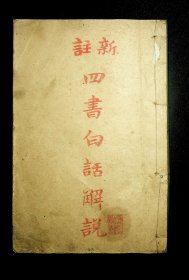 新註
四書白話解說